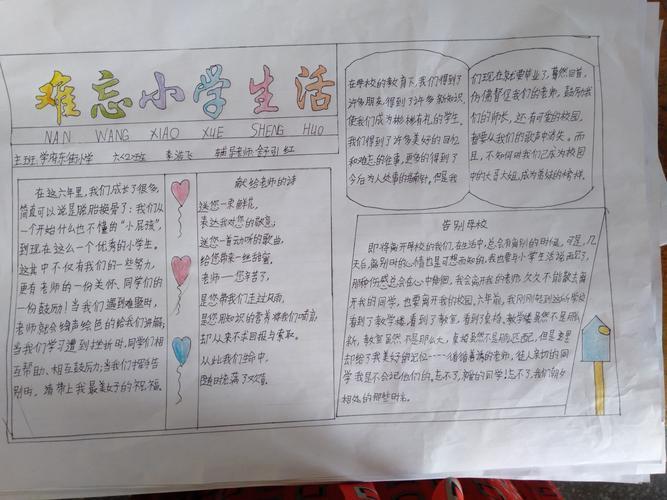 难忘小学生活
NAN WANG XIAO XUE SHENG HUO
主班:学府东街小学 六(2)班 李浩飞 辅导老师:舒引红
在这六年里,我们成长了很多,
简直可以说是脱胎换骨了:我们从
一个开始什么也不懂的“小屁孩”,
到现在这么一个优秀的小学生。
这其中不仅有我们的一些努力,
更有老师的一份关怀、同学们的
一份鼓励!当我们遇到难题时,
老师就会绘声绘色的给我们讲解;
当我们学习遭到挫折时,同学们相
互帮助、相互鼓励;当我们挥手告
别时,请带上我最美好的祝福。
献给老师的诗
送您一束鲜花,
表达我对您的敬意;
送您一首动听的歌曲,
给您带来一丝甜蜜。
老师——您辛苦了,
是您带我们走过风雨,
是您用知识的营养将我们哺育,
却从来不求回报与索取。
从此我们的心中,
随时充满了欢喜。
在母校的教育下,我们得到了
许多朋友,得到了许多新知识,
使我们成为彬彬有礼的学生。
我们得到了许多美好的回忆
和难忘的往事,更多的得到了
今后为人处事的指南针。但是我
们现在就要毕业了,蓦然回首,
仿佛督促我们的老师,鼓励我
们的师长,还有可爱的校园,
都要从我们的歌声中消失。而
且,不知何时我们已成为校园
中的大哥大姐,成为弟妹的榜样。
告别母校
即将离开母校的我们,在生活中,总会有离别的时候,可是,几
天后,离别时的心情也是可想而知的,我也要与小学生活 告 了,
那种伤感总会在心中徘徊,我会离开我的老师,久久不能散去离
开我的同学,也要离开我的校园,六年前,我刚刚转到这所学校
看到了教学楼,看到了教室,看到了桌椅,教学楼虽然不是那么
新,教室虽然不是那么大,桌椅虽然不是那么匹配,但是 里
却给了我美好的记忆——循循善诱的老师,和人亲切的同
学我是不会忘记他们的。忘不了, 的同学!忘不了,我们朝夕
相处的那些时光。